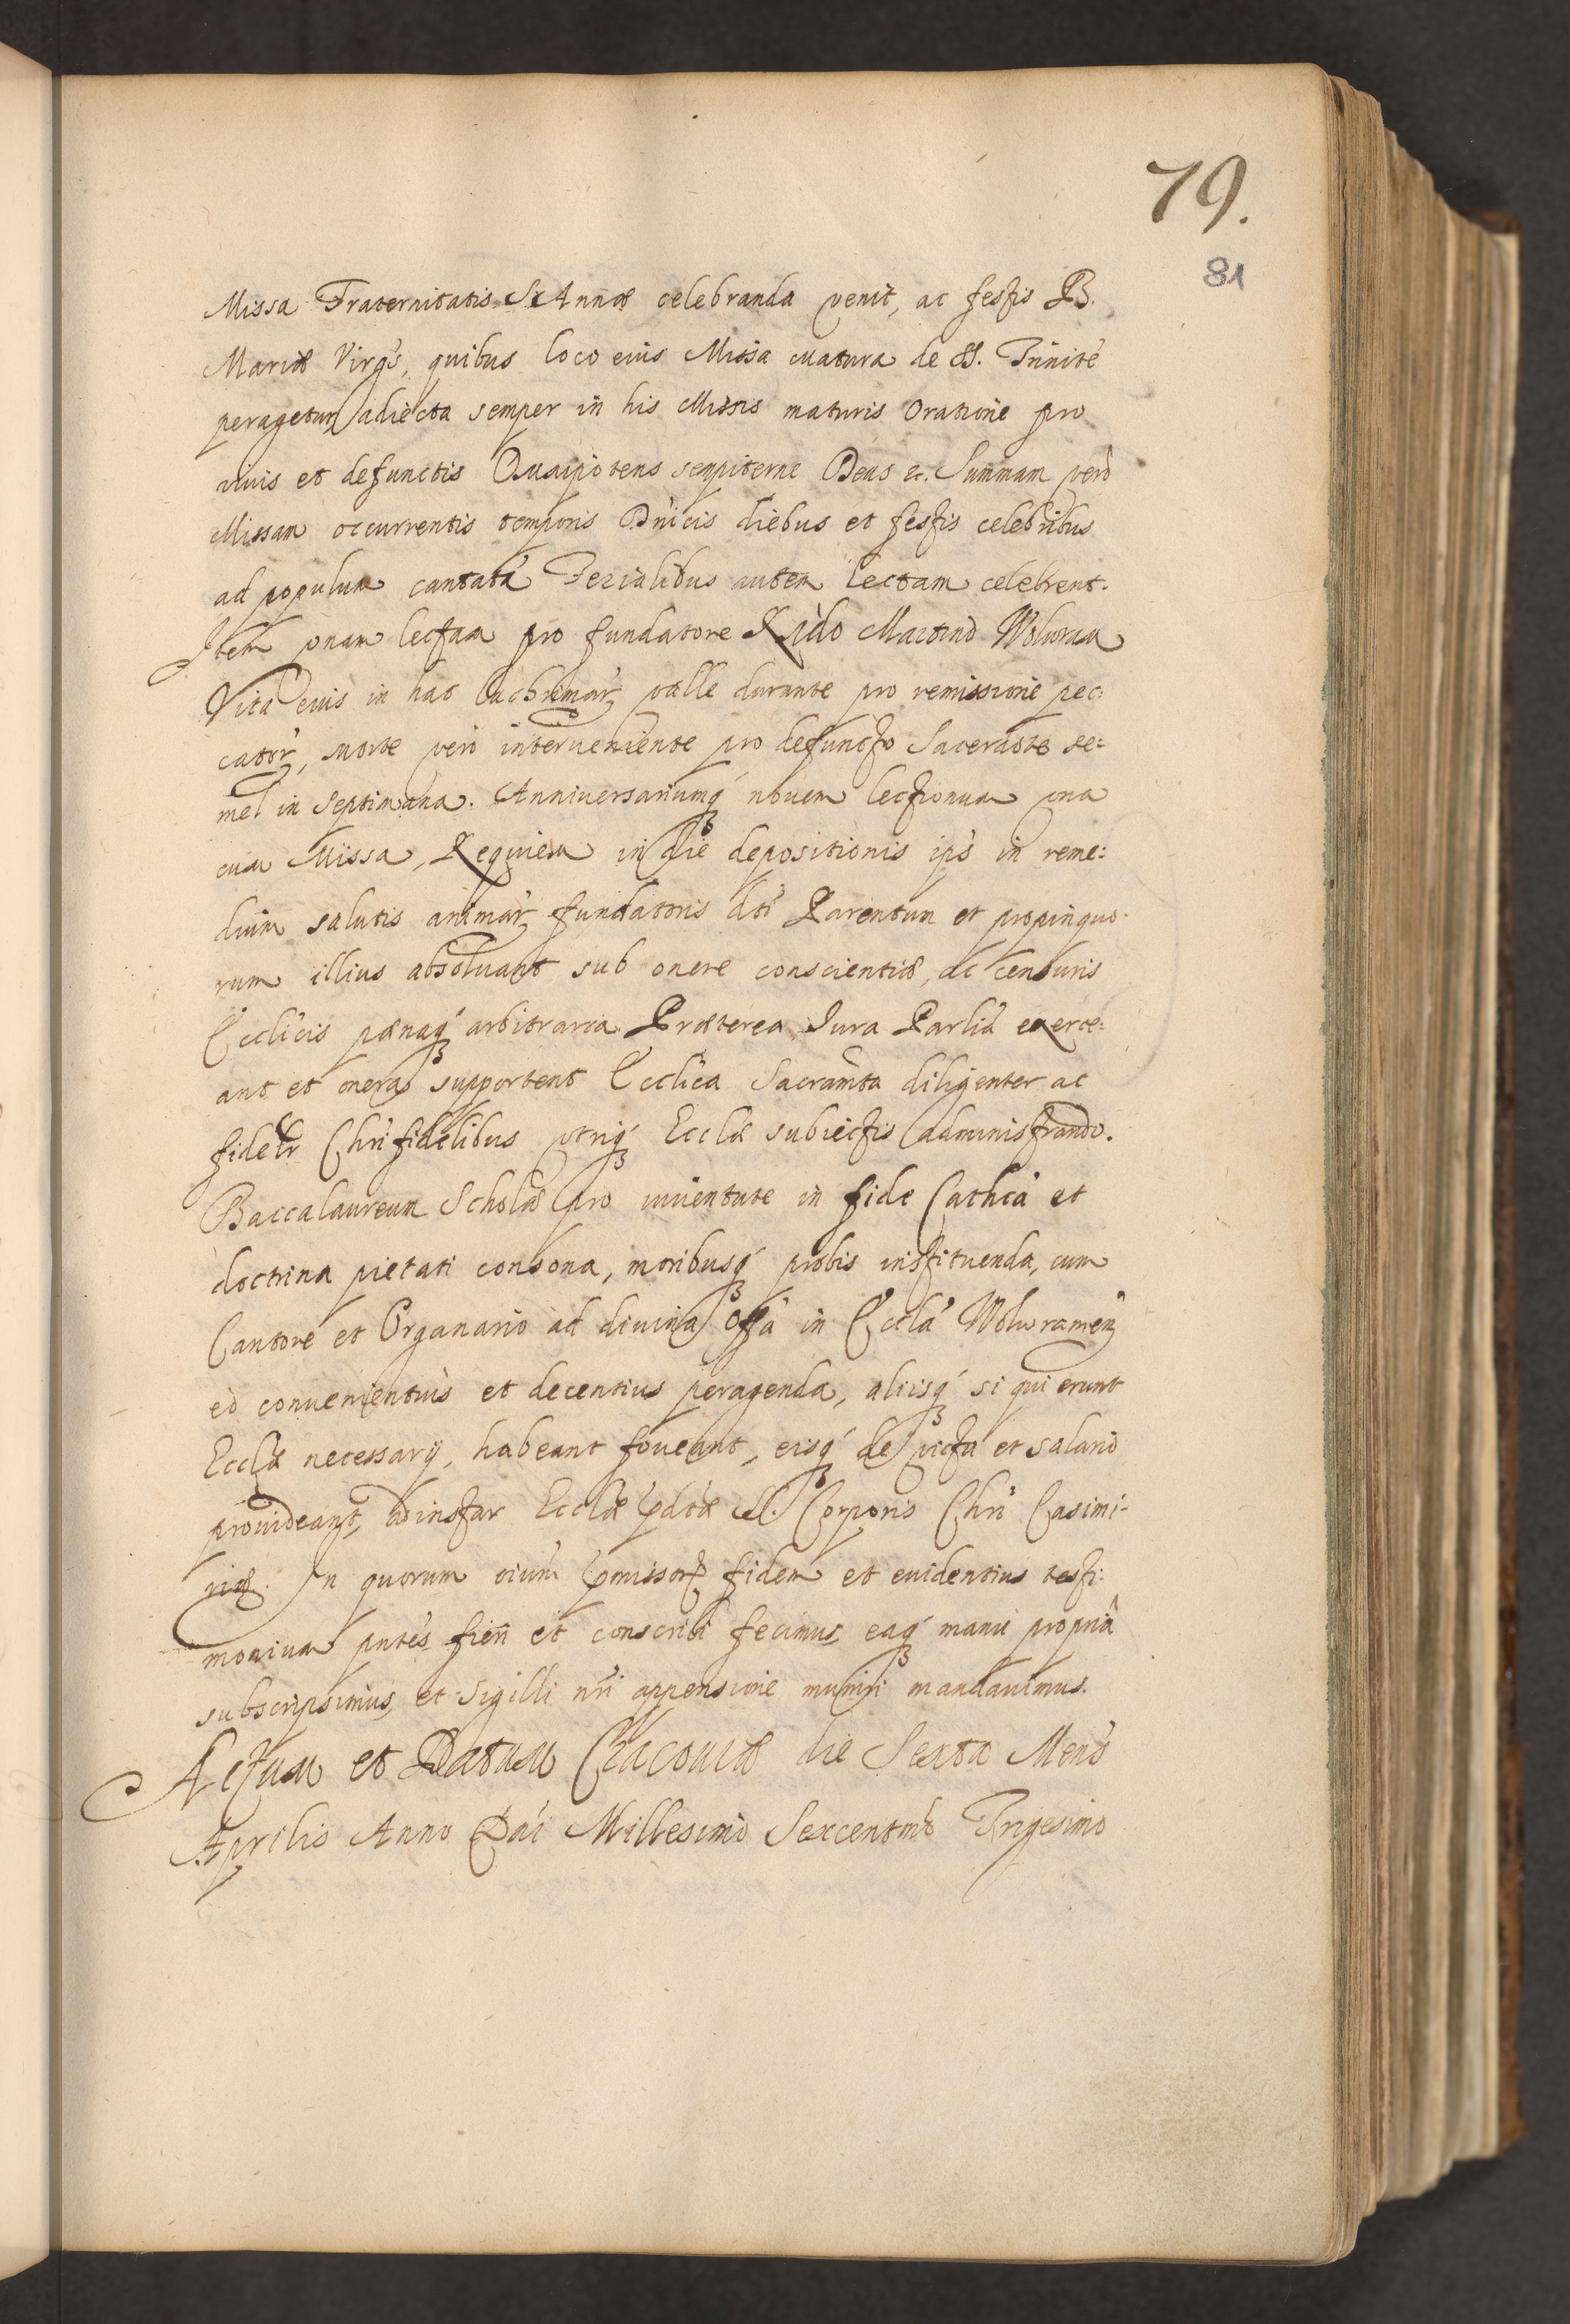 79.
81
Missa Fraternitatis S. Annæ celebranda venit, ac festis B.
Mariæ Virg̃s, quibus loco eius Missa matura de SS. Trinitẽ
peragetur, adiecta semper in his Missis maturis Oratione pro
vivis et defunctis Omnipotens sempiterne Deus &c. Summam verò
Missam occurrentis temporis Dñicis diebus et festis celebribus
ad populum cantatã Ferialibus autem lectam celebrent.
Item vnam lectam pro fundatore Rńdo Martino Woluram
Vita eius in hac lachrimar̃ valle durante pro remissione pec:
cator̃, morte verò interueniente pro defuncto Sacerdote se:
mel in Septimana. Anniversariumq́3 nouem lectionum vna
cum Missa, Requiem in die depositionis ips̃ in reme:
dium salutis animar̃ fundatoris dti Parentum et propinquo:
rum illius absoluant sub onere conscientiæ, ac censuris
Ecclicis pænaq́3 arbitraria. Præterea Jura Parlia exerce:
ant et onera supportent Ecclica Sacramta diligenter ac
fidelr Chrifidelibus vtriq́3 Ecclæ subiectis administrando.
Baccalaureum Scholæ pro iuuentute in fide Cathca et
doctrina pietati consona, moribusq́3 probis instituenda, cum
Cantore et Organario ad diuina offa in Eccla Wolwramen̄
eò conuenientiùs et decentius peragenda, aliisq́3 si qui erunt
Ecclæ necessarij, habeant foueant, eisq́3 de victu et salario
prouideant, ad instar Ecclæ p̃dctæ SS. Corporis Chri Casimi-
riæ. In quorum oium p̃missor̃ fidem et euidentius testi:
monium pntes fieri et conscribi fecimus, eaq́3 manu propriâ
subscripsimus, et Sigilli nri appensione muniri mandauimus.
Actum et Datum Cracouiæ die Sexta Mens̃
Aprilis Anno Dñi Millesimo Sexcentmo Trigesimo